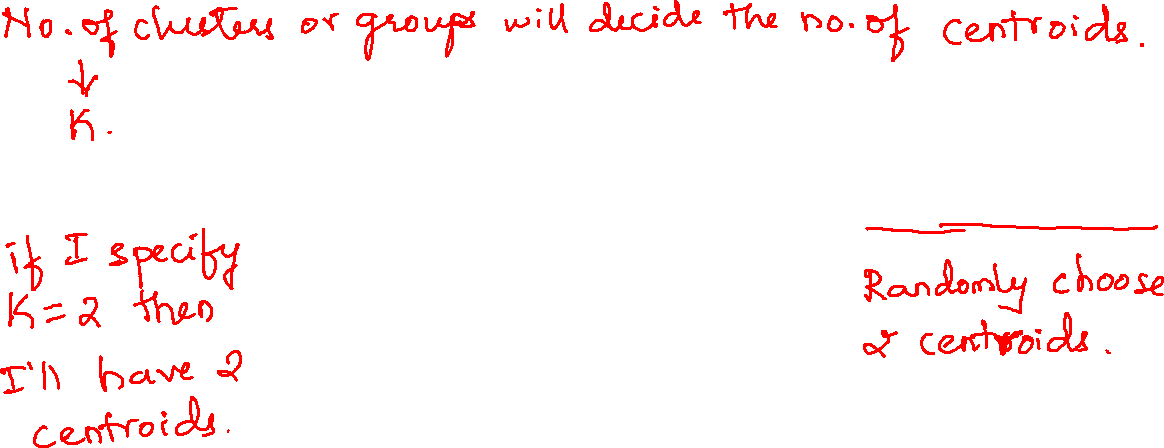 No. of clusters or groups will decide the no. of centroids.
K.
if I specify
K=2 then
I'll have 2
centroids.
Randomly choose
2 centroids.